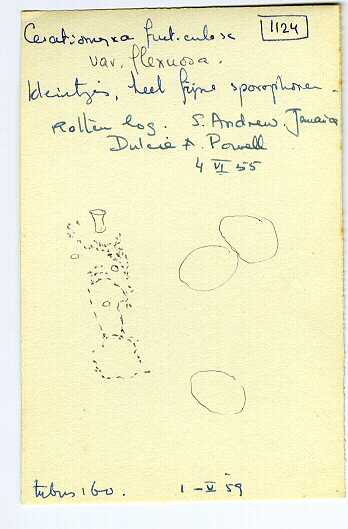 Ceratiomyxa fruticulosa
1124
var. flexuosa.
heel fijne sporophoren
Rotten log. S. Andrew. Jamaica
Dulcie A. Powell
4 VI 55
tubus 160. 1-V 59